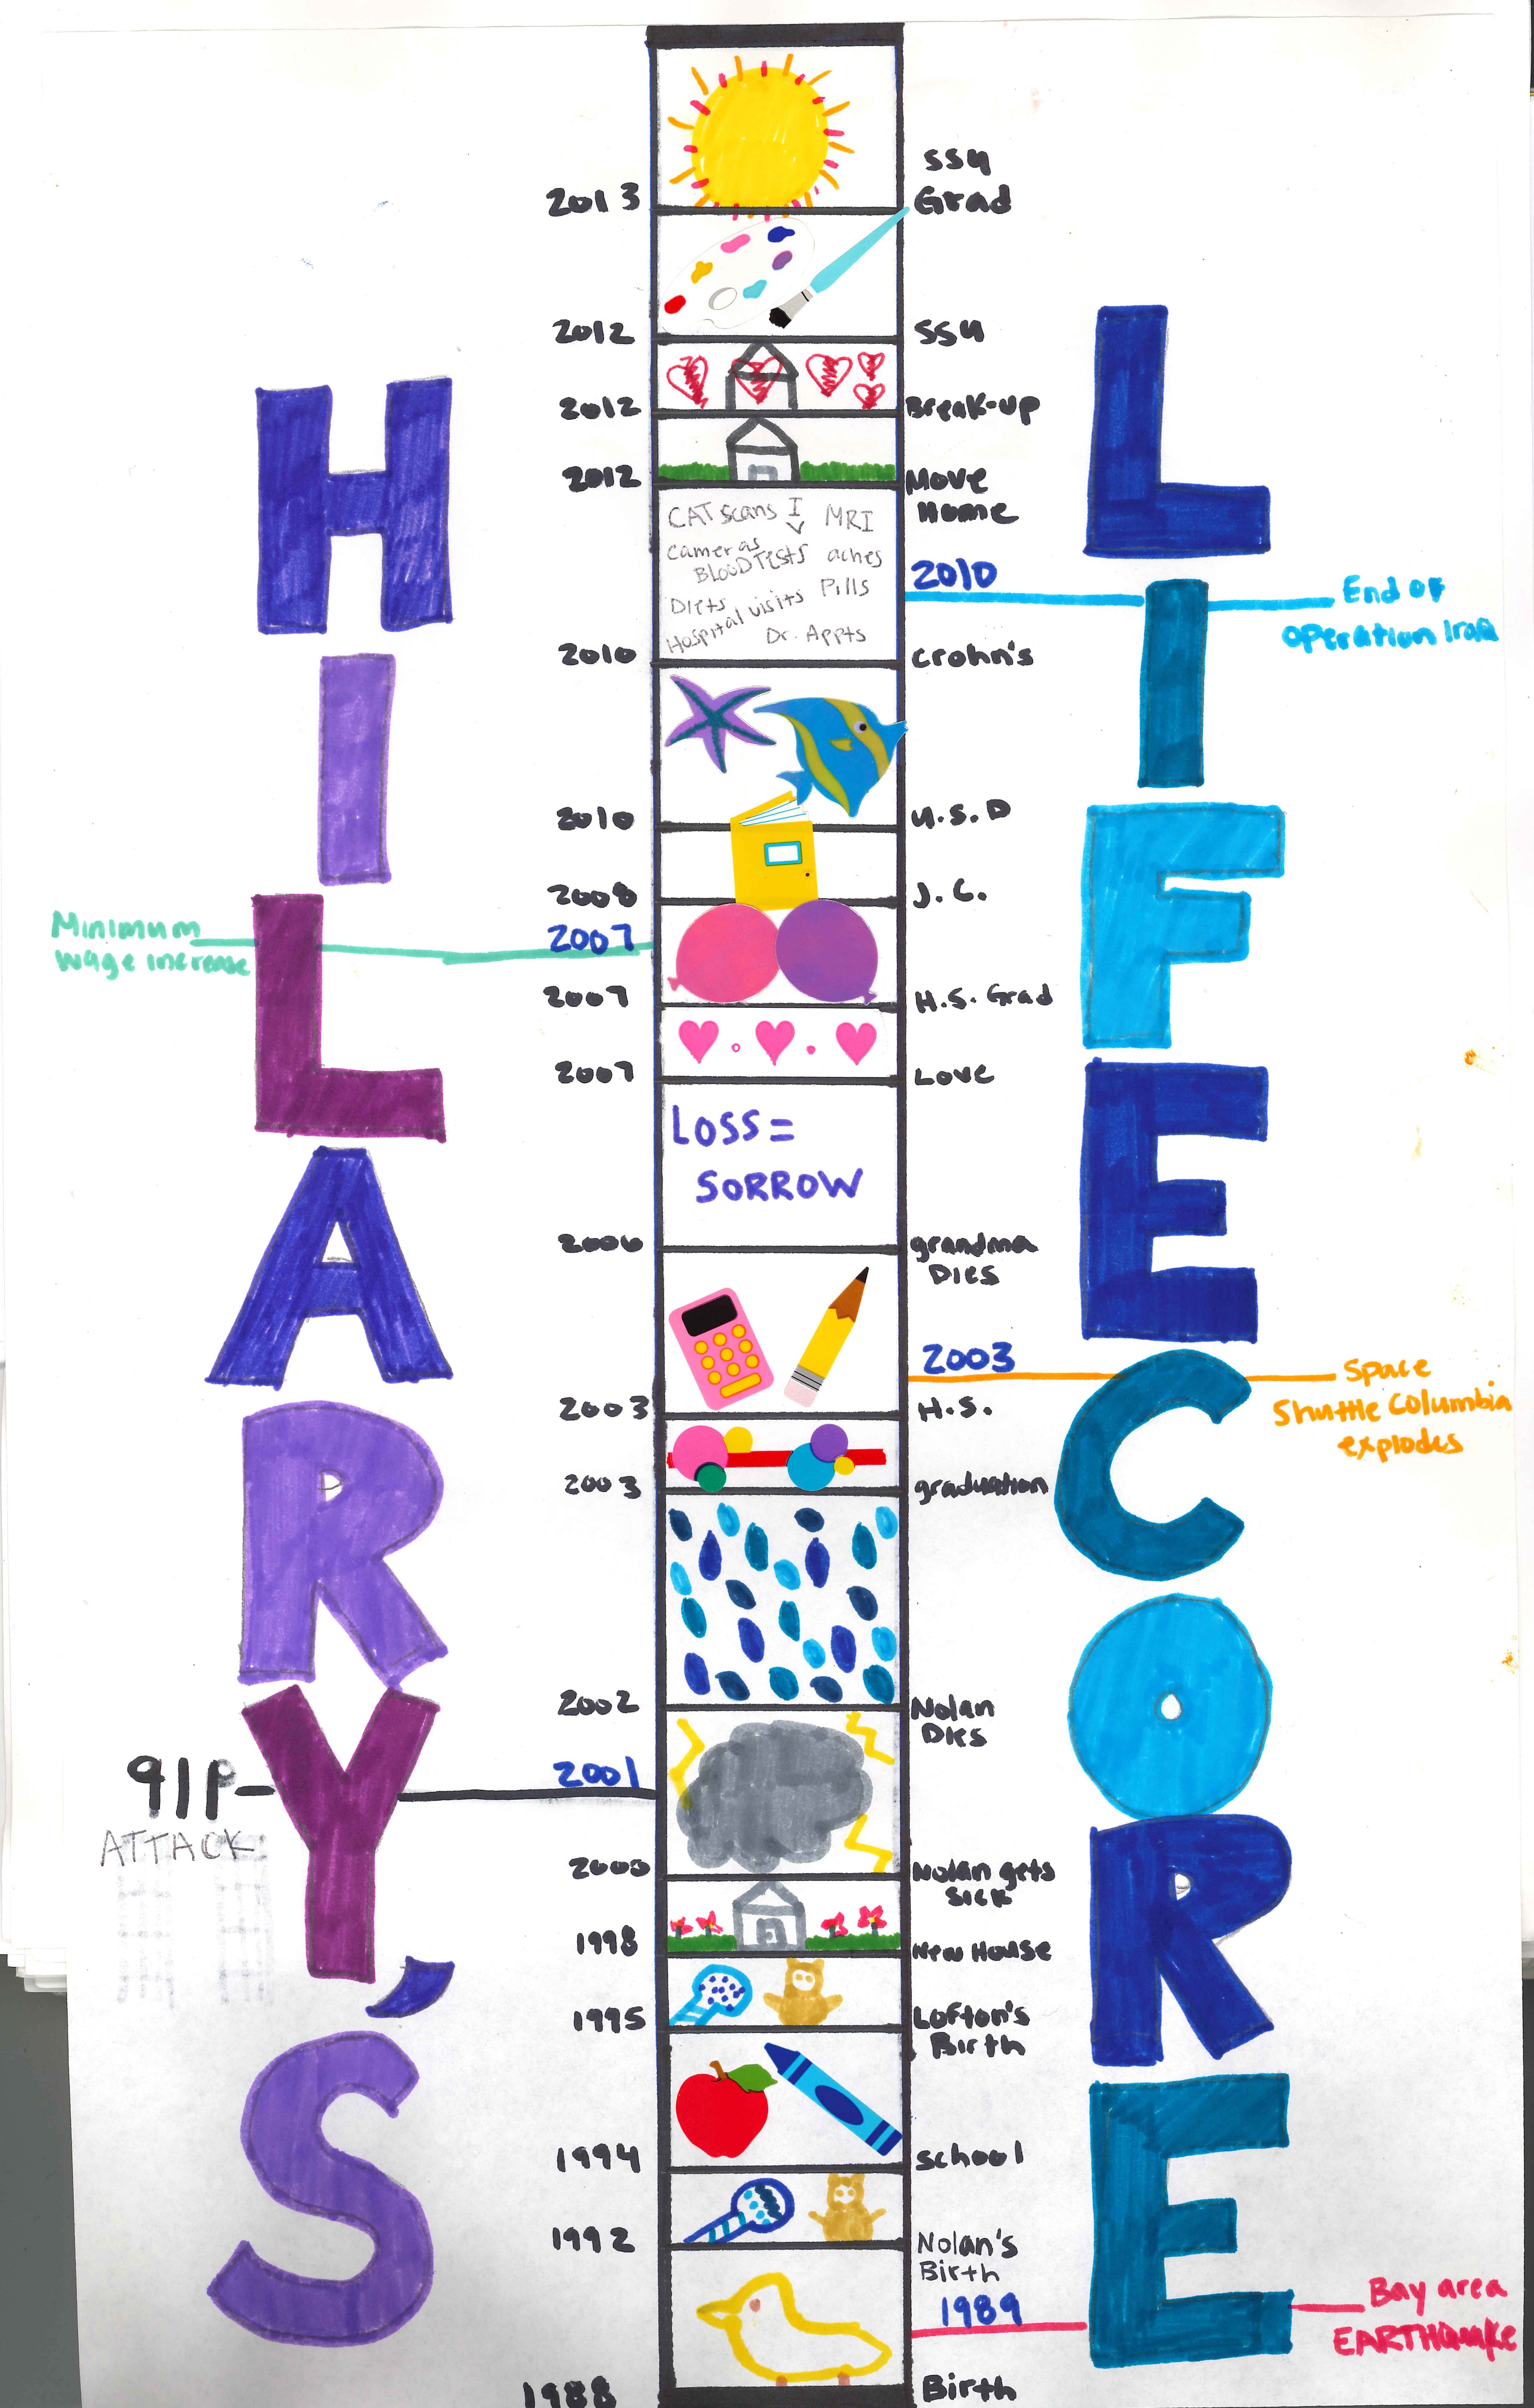 HILARY'S
LIFE CORE
2013
SSU
Grad
2012
SSU
2012
Break-up
2012
Move
Home
CAT scans IV MRI
cameras
BLOOD TESTS aches
Diets Pills
Hospital visits
Dr. Appts
2010
End of
operation Iraq
2010
crohn's
2010
U.S.D
2008
J.C.
Minimum
wage increase
2007
2007
H.S. Grad
2007
Love
LOSS =
SORROW
2006
grandma
Dies
2003
Space
Shuttle Columbia
explodes
2003
H.S.
2003
graduation
2002
Nolan
Dies
911
2001
ATTACK
2000
Nolan gets
sick
1998
New House
1995
Lofton's
Birth
1994
school
1992
Nolan's
Birth
1989
Bay area
EARTHQuake
1988
Birth